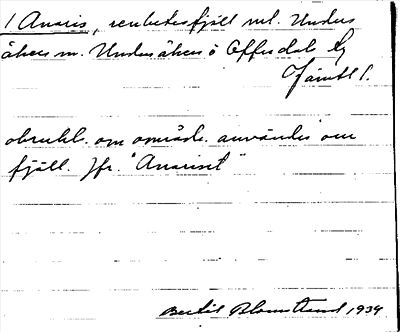 1 Anaris, renbetesfjäll ml. Unders
åkers m. Undersåkers o Offerdals lg
Jämtl l.
obrukl. om område. användes om
fjäll. Jfr. "Anariset"
Bertil Blomstrand 1934